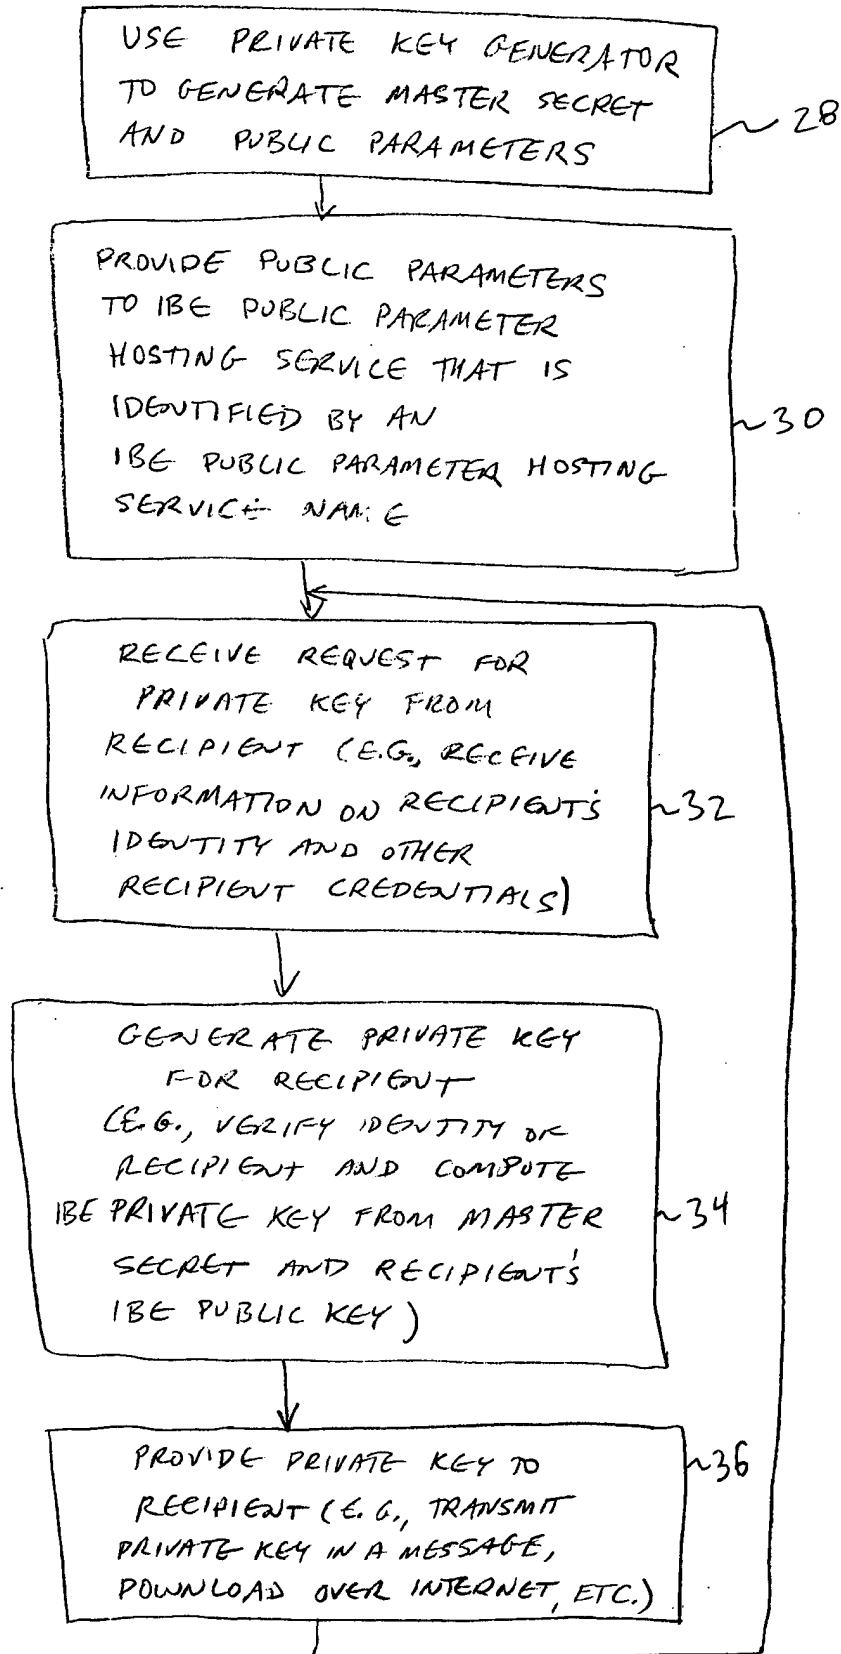 USE PRIVATE KEY GENERATOR
TO GENERATE MASTER SECRET
AND PUBLIC PARAMETERS
28
PROVIDE PUBLIC PARAMETERS
TO IBE PUBLIC PARAMETER
HOSTING SERVICE THAT IS
IDENTIFIED BY AN
IBE PUBLIC PARAMETER HOSTING
SERVICE NAME
30
RECEIVE REQUEST FOR
PRIVATE KEY FROM
RECIPIENT (E.G., RECEIVE
INFORMATION ON RECIPIENT'S
IDENTITY AND OTHER
RECIPIENT CREDENTIALS)
32
GENERATE PRIVATE KEY
FOR RECIPIENT
(E.G., VERIFY IDENTITY OF
RECIPIENT AND COMPUTE
IBE PRIVATE KEY FROM MASTER
SECRET AND RECIPIENT'S
IBE PUBLIC KEY)
34
PROVIDE PRIVATE KEY TO
RECIPIENT (E.G., TRANSMIT
PRIVATE KEY IN A MESSAGE,
DOWNLOAD OVER INTERNET, ETC.)
36